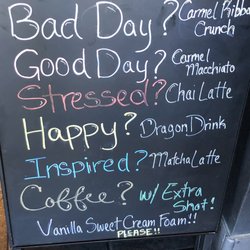 Bad Day? Carmel Ribbon
Crunch
Good Day? Carmel
Macchiato
Stressed? Chai Latte
Happy? Dragon Drink
Inspired? Matcha Latte
Coffee? w/ Extra
Shot!
Vanilla Sweet Cream Foam!!
PLEASE!!